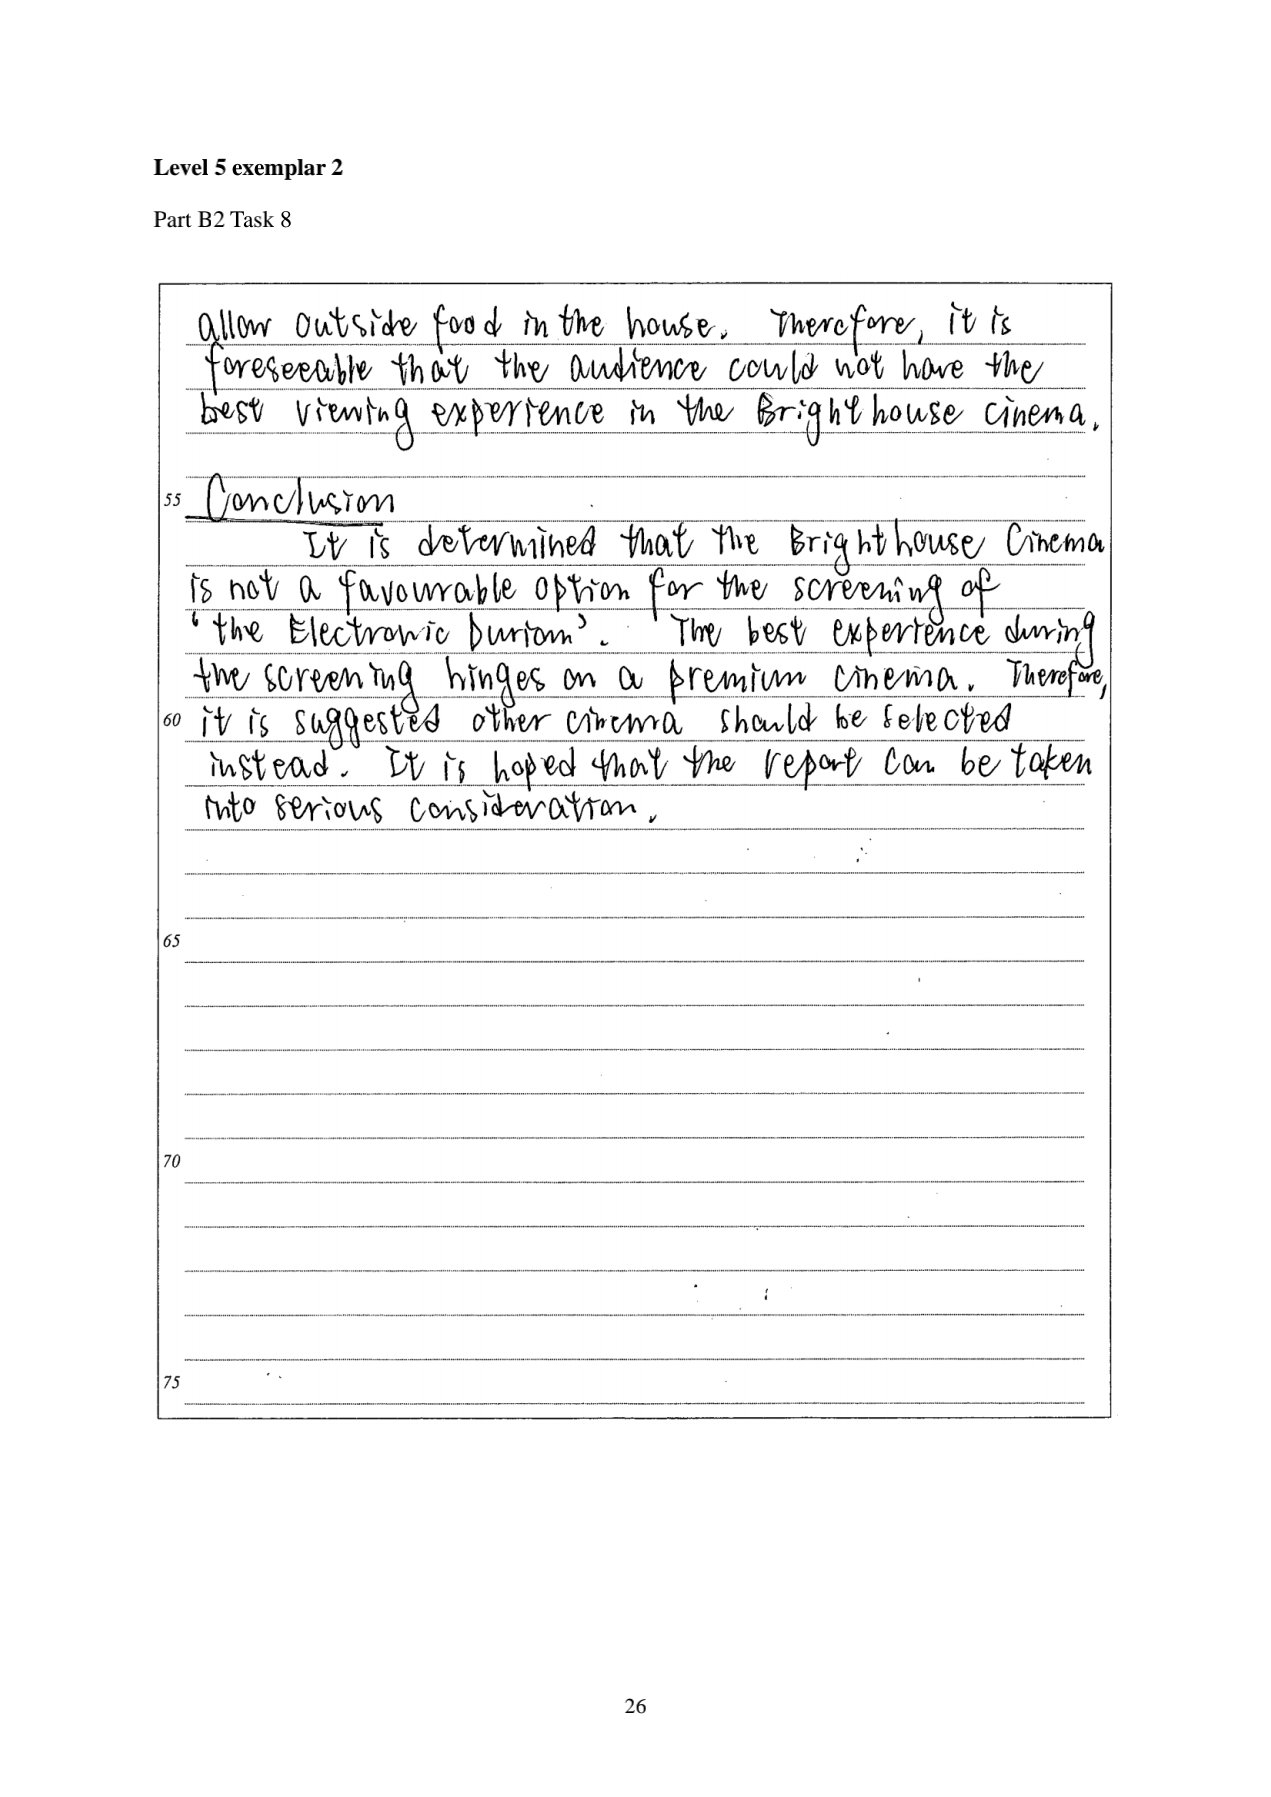 Level 5 exemplar 2
Part B2 Task 8
allow outside food in the house. Therefore, it is
foreseeable that the audience could not have the
best viewing experience in the Brighthouse cinema.
55 Conclusion
It is determined that the Brighthouse Cinema
is not a favourable option for the screening of
'the Electronic Durian'. The best experience during
the screening hinges on a premium cinema. Therefore,
60 it is suggested other cinema should be selected
instead. It is hoped that the report can be taken
into serious consideration.
65
70
75
26